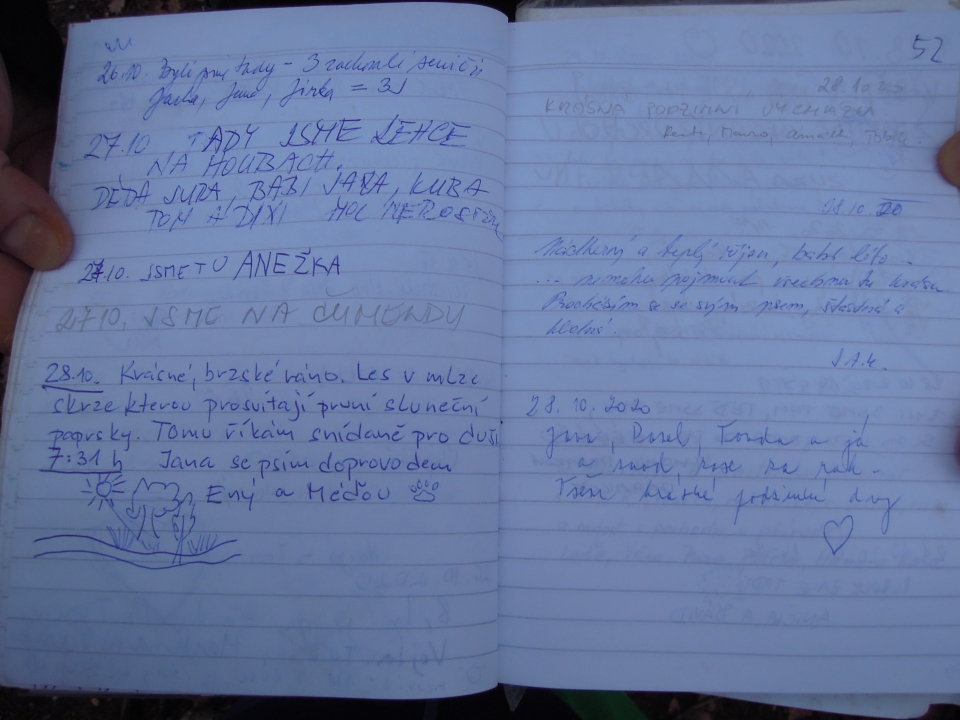 26.10. Byli jsme tady – 3 zachovalí senioři
Jarka, Jana, Jirka = 3J
27.10 TADY JSME LEHCE
NA HOUBACH.
DĚDA JURA, BABI JARA, KUBA
TOM A DIXI MOC NEROSTOU
27.10. JSME TU ANEŽKA
27.10. JSME NA ČUMENDU
28.10. Krásné, brzské ráno. Les v mlze
skrze kterou prosvítají první sluneční
paprsky. Tomu říkám snídaně pro duši
7:31 h Jana se psím doprovodem
Ený a Méďou
52
28.10.20
KRÁSNÁ PODZIMNÍ VYCHÁZKA
28.10 20
Nádherný a teplý říjen, babí léto..
... nemohu pojmout všechnu tu krásu
Procházím se se svým psem, šťastná a
klidná.
J.A.K.
28. 10. 2020
Jana, Pavel, Tonda a já
a snad zase za rok.
krásné podzimní dny